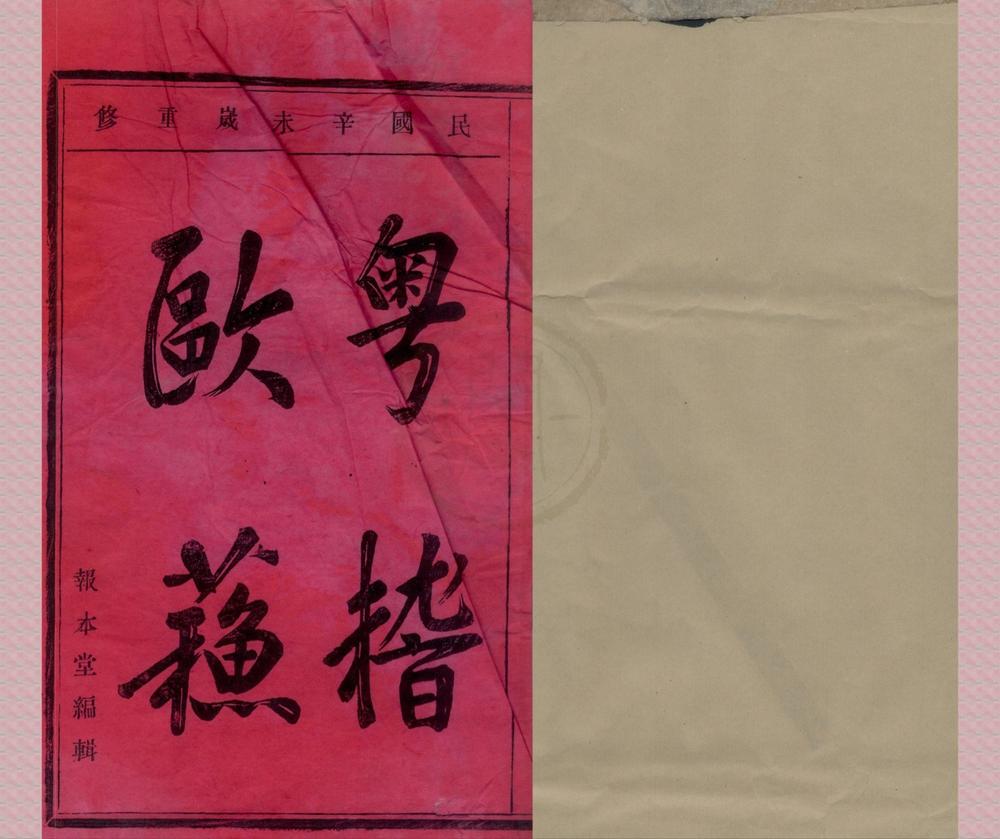 民國辛未歲重修
粤稽
歐蘓
報本堂編輯